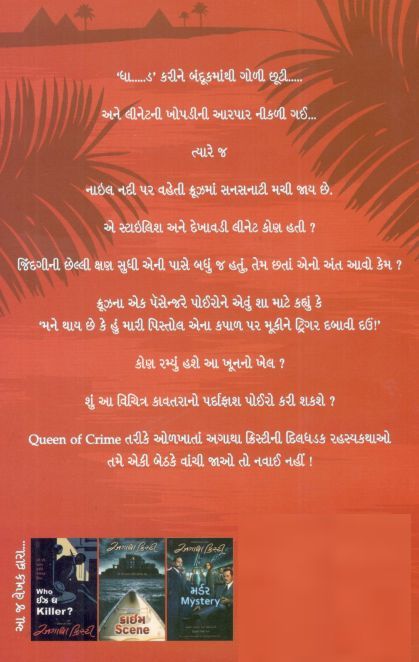 ‘ધા.....ડ’ કરીને બંદૂકમાંથી ગોળી છૂટી.....
અને લીનેટની ખોપડીની આરપાર નીકળી ગઈ...
ત્યારે જ
નાઇલ નદી પર વહેતી ક્રૂઝમાં સનસનાટી મચી જાય છે.
એ સ્ટાઇલિશ અને દેખાવડી લીનેટ કોણ હતી ?
જિંદગીની છેલ્લી ક્ષણ સુધી એની પાસે બધું જ હતું, તેમ છતાં એનો અંત આવો કેમ ?
ક્રૂઝના એક પૅસેન્જરે પોઈરોને એવું શા માટે કહ્યું કે
‘મને થાય છે કે હું મારી પિસ્તોલ એના કપાળ પર મૂકીને ટ્રિગર દબાવી દઉં!’
કોણ રમ્યું હશે આ ખૂનનો ખેલ ?
શું આ વિચિત્ર કાવતરાનો પર્દાફાશ પોઈરો કરી શકશે ?
Queen of Crime તરીકે ઓળખાતાં અગાથા ક્રિસ્ટીની દિલધડક રહસ્યકથાઓ
તમે એકી બેઠકે વાંચી જાઓ તો નવાઈ નહીં !
આ જ લેખક દ્વારા...
Who
ઈઝ ધ
Killer?
અગાથા ક્રિસ્ટી
અગાથા ક્રિસ્ટી
ક્રાઈમ
Scene
અગાથા ક્રિસ્ટી
મર્ડર
Mystery